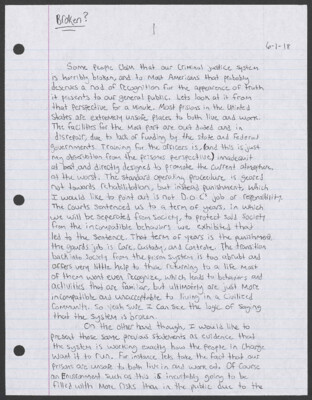 Broken?
1
6-1-18
Some People Claim that our Criminal justice system
is horribly broken, and to most Americans that probably
deserves a nod of recognition for the appearance of truth
it presents to our general public. Lets look at it from
that perspective for a minute. Most prisons in the United
States are extremely unsafe places to both live and work.
The facilities for the most part are out dated and in
disrepair, due to lack of funding by the state and federal
governments. Training for the officers is, (and this is just
my observation from the prisoners perspective) inadequate
at best, and directly designed to promote the current
at the worst. The standard operating procedure is geared
not towards rehabilitation, but instead punishment. Which
I would like to point out is not D.O.C's job or responsibility.
The Courts sentenced us to a term of years, in which
we will be seperated from society, to protect said society
from the incompatible behaviors we exhibited that
led to the sentence. That term of years is the punishment.
The guards job is Care, Custody, and Controle. The transition
back into society from the prison system is too abrubt and
offers very little help to those returning to a life most
of them wont even recognize, which leads to behaviors and
activities that are familiar, but ultimately are just more
incompatible and unacceptable to living in a Civilized
Community. So yeah sure I can see the logic of saying
that the system is broken.
On the other hand though, I would like to
present these same previous statements as evidence that
the system is working exactly how the People in charge
want it to run. For instance, lets take the fact that our
prisons are unsafe to both live in and work in. Of course
an Environment such as this is inevitably going to be
filled with more risks than in the public due to the